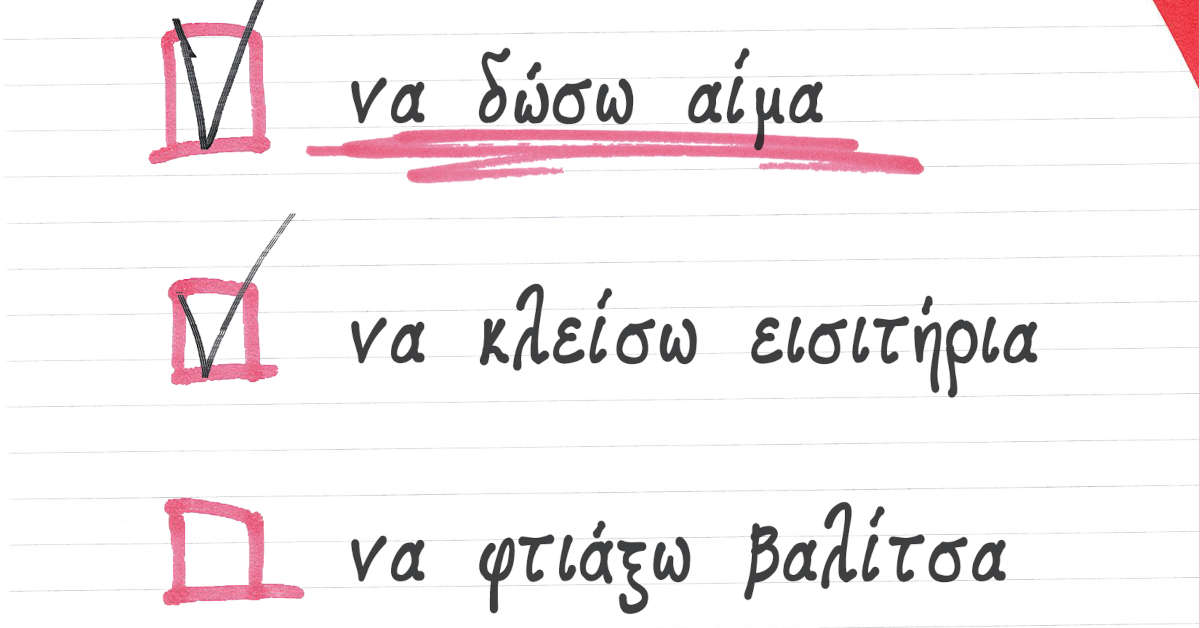 να δώσω αίμα
να κλείσω εισιτήρια
να φτιάξω βαλίτσα